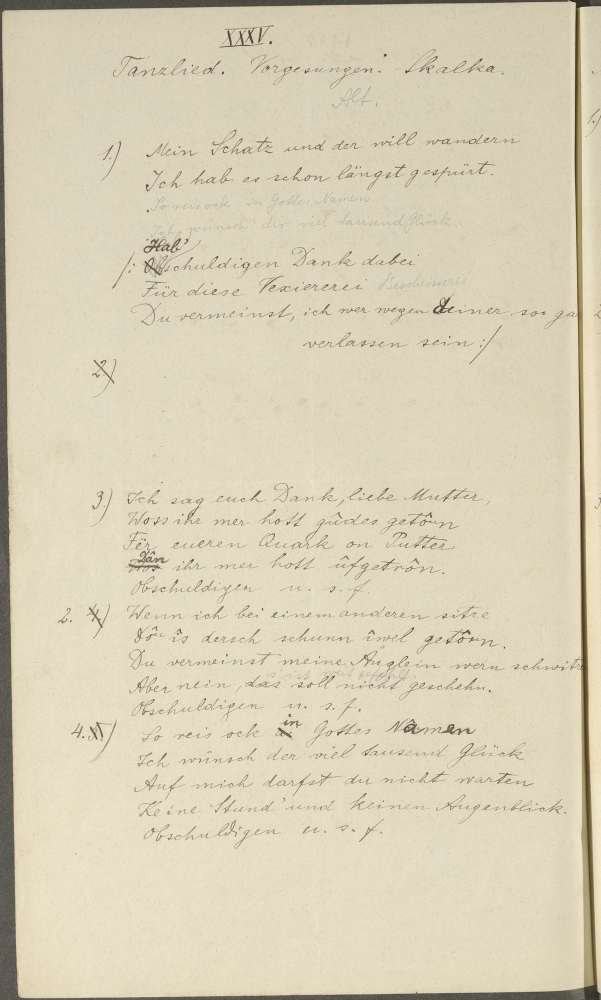 XXXV.
Tanzlied. Vorgesungen: Skalka.
Alt.
1.) Mein Schatz und der will wandern
Ich hab es schon längst gespürt.
So reis ock in Gottes Namen
Ich wünsch dir viel tausend Glück.
Hab'
/: Obschuldigen Dank dabei
Für diese Vexiererei
Du vermeinst, ich wer wegen deiner soo ga
verlassen sein :/
2.)
3.) Ich sag euch Dank, liebe Mutter,
Woss ihr mer hott gûdes getôn
Fër eueren Quark on Putter
Dän
ihr mer hott ûfgetrôn.
Obschuldigen u. s. f.
2. 4.) Wenn ich bei einem anderen sitze
îs dersch schunn îwel getôn.
Du vermeinst meine Äuglein wern schwitz
Aber nein, das soll nicht geschehn.
Obschuldigen u. s. f.
4. So reis ock in Gottes Namen
Ich wünsch der viel tausend Glück
Auf mich darfst du nicht warten
Keine Stund' und keinen Augenblick.
Obschuldigen u. s. f.